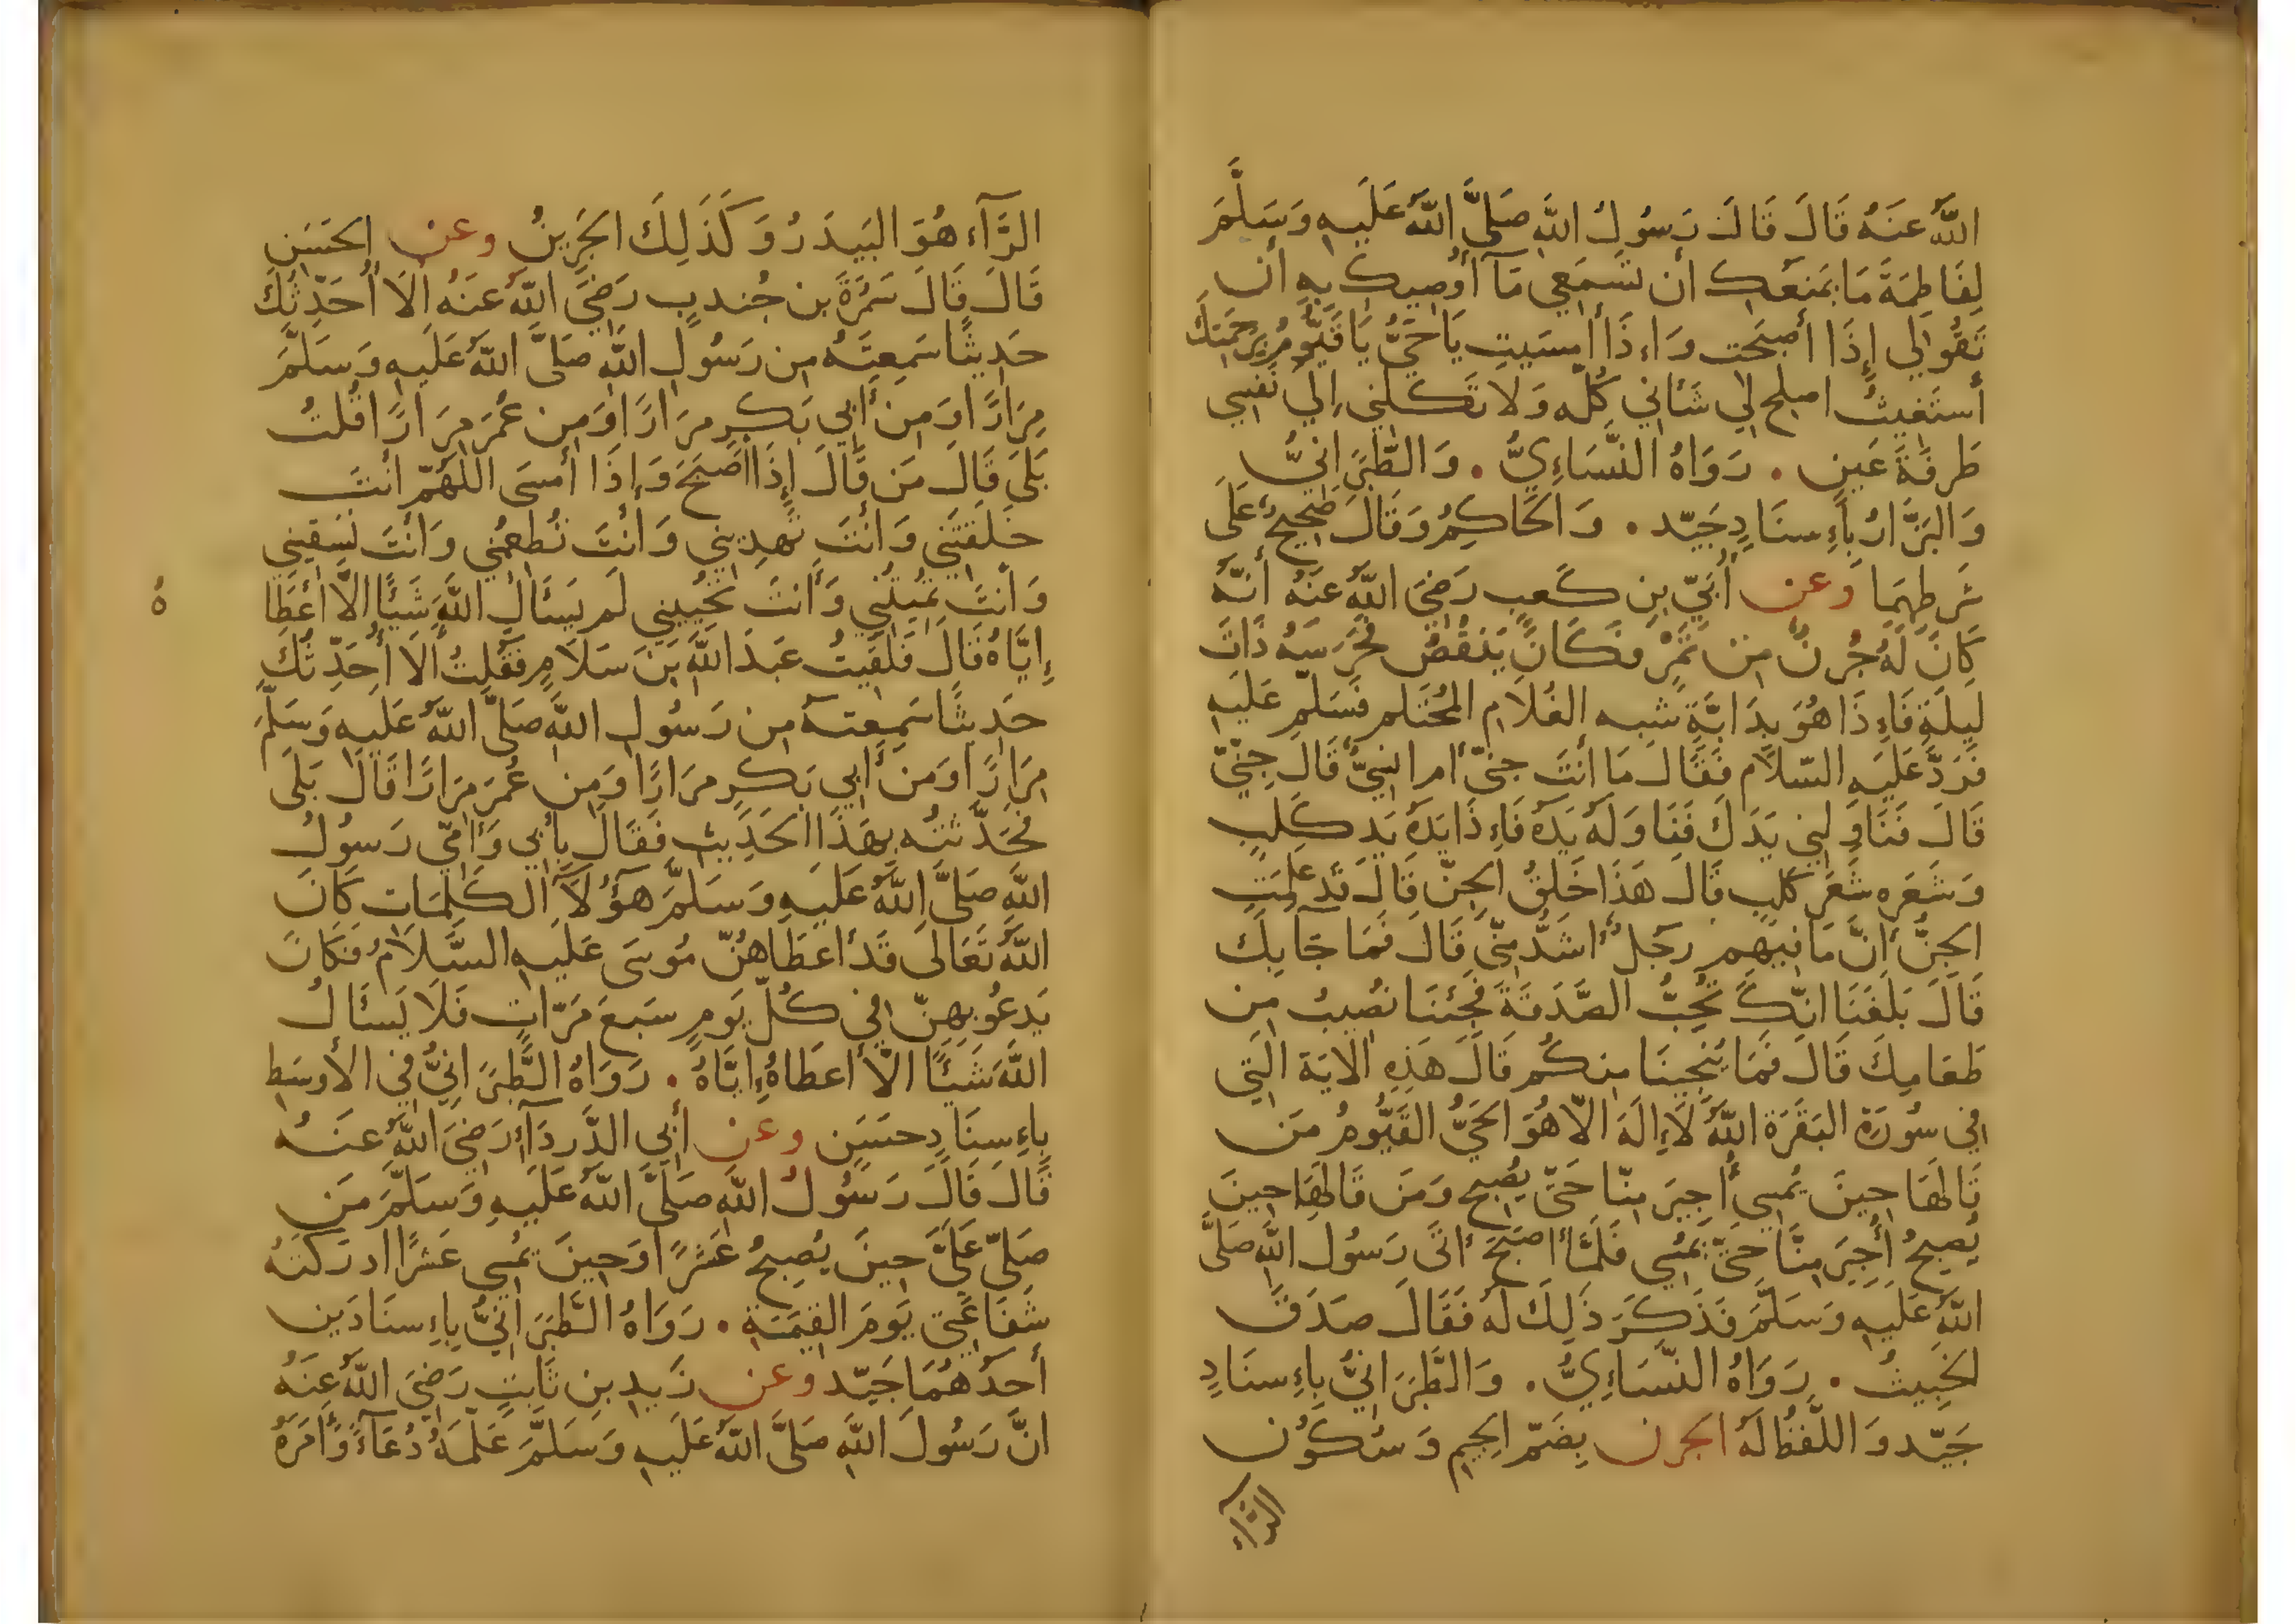 اللّٰهُ عَنهُ قَالَ قَالَ رَسُولُ اللّٰهِ صَلَّى اللّٰهُ عَلَيهِ وَسَلَّمَ
لِفَاطِمَةَ مَا يَمنَعُكِ أن تَسمَعِي مَآ أُوصِيكِ بِهِ أن
تَقُولِي إِذَا أصبَحتِ وَإِذَا أمسَيتِ يَا حَيُّ يَا قَيُّومُ بِرَحمَتِكَ
أستَغِيثُ اصلِح لِي شَأنِي كُلَّه وَلَا تَكِلنِي إِلَى نَفسِي
طَرفَةَ عَينٍ . رَوَاهُ النَّسَاءِيُّ . وَالطَّبَرَانِيُّ
وَالبَزَّارُ بِإِسنَادٍ جَيّد . وَالحَاكِمُ وَقَالَ صَحِيحٌ عَلَى
شَرطِهِمَا وعن أُبَيِّ بنِ كَعبٍ رَضِيَ اللّٰهُ عَنهُ أنَّهُ
كَانَ لَهُ جُرنٌ مِن تَمرٍ فَكَانَ يَنقُصُ فَحَرَسَهُ ذَاتَ
لَيلَةٍ فَإِذَا هُوَ بِدَابَّةٍ شِبهِ الغُلَامِ المُحتَلِمِ فَسَلَّمَ عَلَيهِ
فَرَدَّ عَلَيهِ السّلَام فَقَالَ مَا أنتَ جِنّيٌّ أم انسِيٌّ قَالَ جِنّيٌّ
قَالَ فَنَاوِلنِي يَدَكَ فَنَاوَلَهُ يَدَهُ فَإِذَا يَدُهُ يَد كَلبٍ
وَشَعرُه شَعر كَلبٍ قَالَ هَذَا خَلقُ الجِنّ قَالَ قَد عَلِمَتِ
الجِنُّ أنَّ مَا فِيهِم رَجُلٌ أشَدُّ مِنّي قَالَ فَمَا جَآ بِكَ
قَالَ بَلَغَنَا انَّكَ تُحِبُّ الصَّدَقَةَ فَجِئنَا نُصِيبُ مِن
طَعَامِكَ قَالَ فَمَا يُنجِينَا مِنكُم قَالَ هَذِهِ الايَة الَّتِي
فِي سُورَة البَقَرَة اللّٰهُ لَاإِلَهَ الّا هُوَ الحَيُّ القَيُّومُ مَن
قَالَهَا حِينَ يُمسِي أُجِيرَ مِنّا حَتّى يُصبِح وَمَن قَالَهَا حِينَ
يُصبِحُ أُجِيرَ مِنَّا حَتَّى يُمسِي فَلَمَّا أصبَحَ أتَى رَسُولَ اللّٰهِ صَلَّى
اللّٰهُ عَلَيهِ وَسَلَّمَ فَذَكَرَ ذَلِكَ لَهُ فَقَالَ صَدَقَ
الخَبِيثُ . رَوَاهُ النَّسَاءِيُّ . وَالطَّبَرَانِيُّ بِإِسنَادٍ
جَيّد وَاللَّفظُ لَهُ الجرن بِضَمّ الجِيمِ وَسُكُون
الرّآء
الرَّآءِ هُوَ البَيدَرُ وَكَذَلِكَ الجَرِينُ وعن الحَسَنِ
قَالَ قَالَ سَمُرَةُ بن جُندبٍ رَضِيَ اللّٰهُ عَنهُ الَا أُحَدِّثُكَ
حَدِيثًا سَمِعتُهُ مِن رَسُولِ اللّٰهِ صَلَّى اللّٰهُ عَلَيهِ وَسَلَّمَ
مِرَارًا وَمِن أبِي بَكرٍ مِرَارًا وَمِن عُمَر مِرَارًا قُلتُ
بَلَى قَالَ مَن قَالَ إِذَا أصبَحَ وَإِذَا أمسَى اللَّهُمَّ أنتَ
خَلَقتَنِي وَأنتَ تَهدِينِي وَأنتَ تُطعِمُنِي وَأنتَ تَسقِينِي
وَأنتَ تُمِيتُنِي وَأنتَ تُحيِينِي لَم يَسئَالِ اللّٰهَ شَيئًا الَّا أعطَا
إِيَّاهُ قَالَ فَلَقِيتُ عَبدَ اللّٰهِ بنَ سَلَامٍ فَقُلتُ ألَا أُحَدِّثُكَ
حَدِيثًا سَمِعته مِن رَسُولِ اللّٰهِ صَلَّى اللّٰهُ عَلَيهِ وَسَلَّمَ
مِرَارًا وَمِن أبِي بَكرٍ مِرَارًا وَمِن عُمَر مِرَارًا قَالَ بَلَى
فَحَدَّثتُه بِهَذَا الحَدِيثِ فَقَالَ بِأبِي وَأمِّي رَسُولُ
اللّٰهِ صَلَّى اللّٰهُ عَلَيهِ وَسَلَّمَ هَؤُلَآءِ الكَلِمَات كَانَ
اللّٰهُ تَعَالَى قَد أعطَاهُنّ مُوسَى عَلَيهِ السَّلَامُ فَكَانَ
يَدعُو بِهِنّ فِي كُلّ يَومٍ سَبعَ مَرَّاتٍ فَلَا يَسئَالُ
اللّٰهَ شَيئًا الَّا أعطَاهُ إِيَّاهُ . رَوَاهُ الطَّبَرَانِيُّ فِي الأوسَطِ
بِإِسنَادٍ حسَنٍ وعن أبِي الدَّردَآءِ رَضِيَ اللّٰهُ عَنهُ
قَالَ قَالَ رَسُولُ اللّٰهِ صَلَّى اللّٰهُ عَلَيهِ وَسَلَّمَ مَن
صَلّى عَلَيَّ حِينَ يُصبِحُ عَشرًا وَحِينَ يُمسِي عَشرًا ادرَكَتهُ
شَفَاعَتِي يَومَ القِيمَةِ . رَوَاهُ الطَّبَرَانِيُّ بِإِسنَادَين
أحَدُهُمَا جَيّد وعن زَيدِ بنِ ثَابِتٍ رَضِيَ اللّٰهُ عَنهُ
انَّ رَسُولَ اللّٰهِ صَلَّى اللّٰهُ عَلَيهِ وَسَلَّمَ عَلَّمَهُ دُعَآءً وَأمَرَهُ